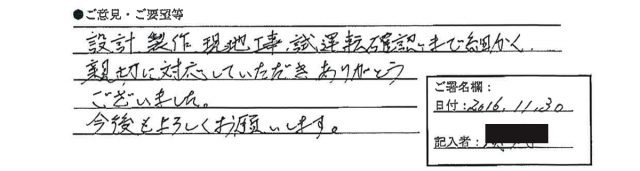 ●ご意見・ご要望等
設計 製作 現地工事、試運転確認まで細かく
親切に対応していただき ありがとう
ございました。
今後もよろしくお願いします。
ご署名欄：
日付：2016.11.30
記入者：